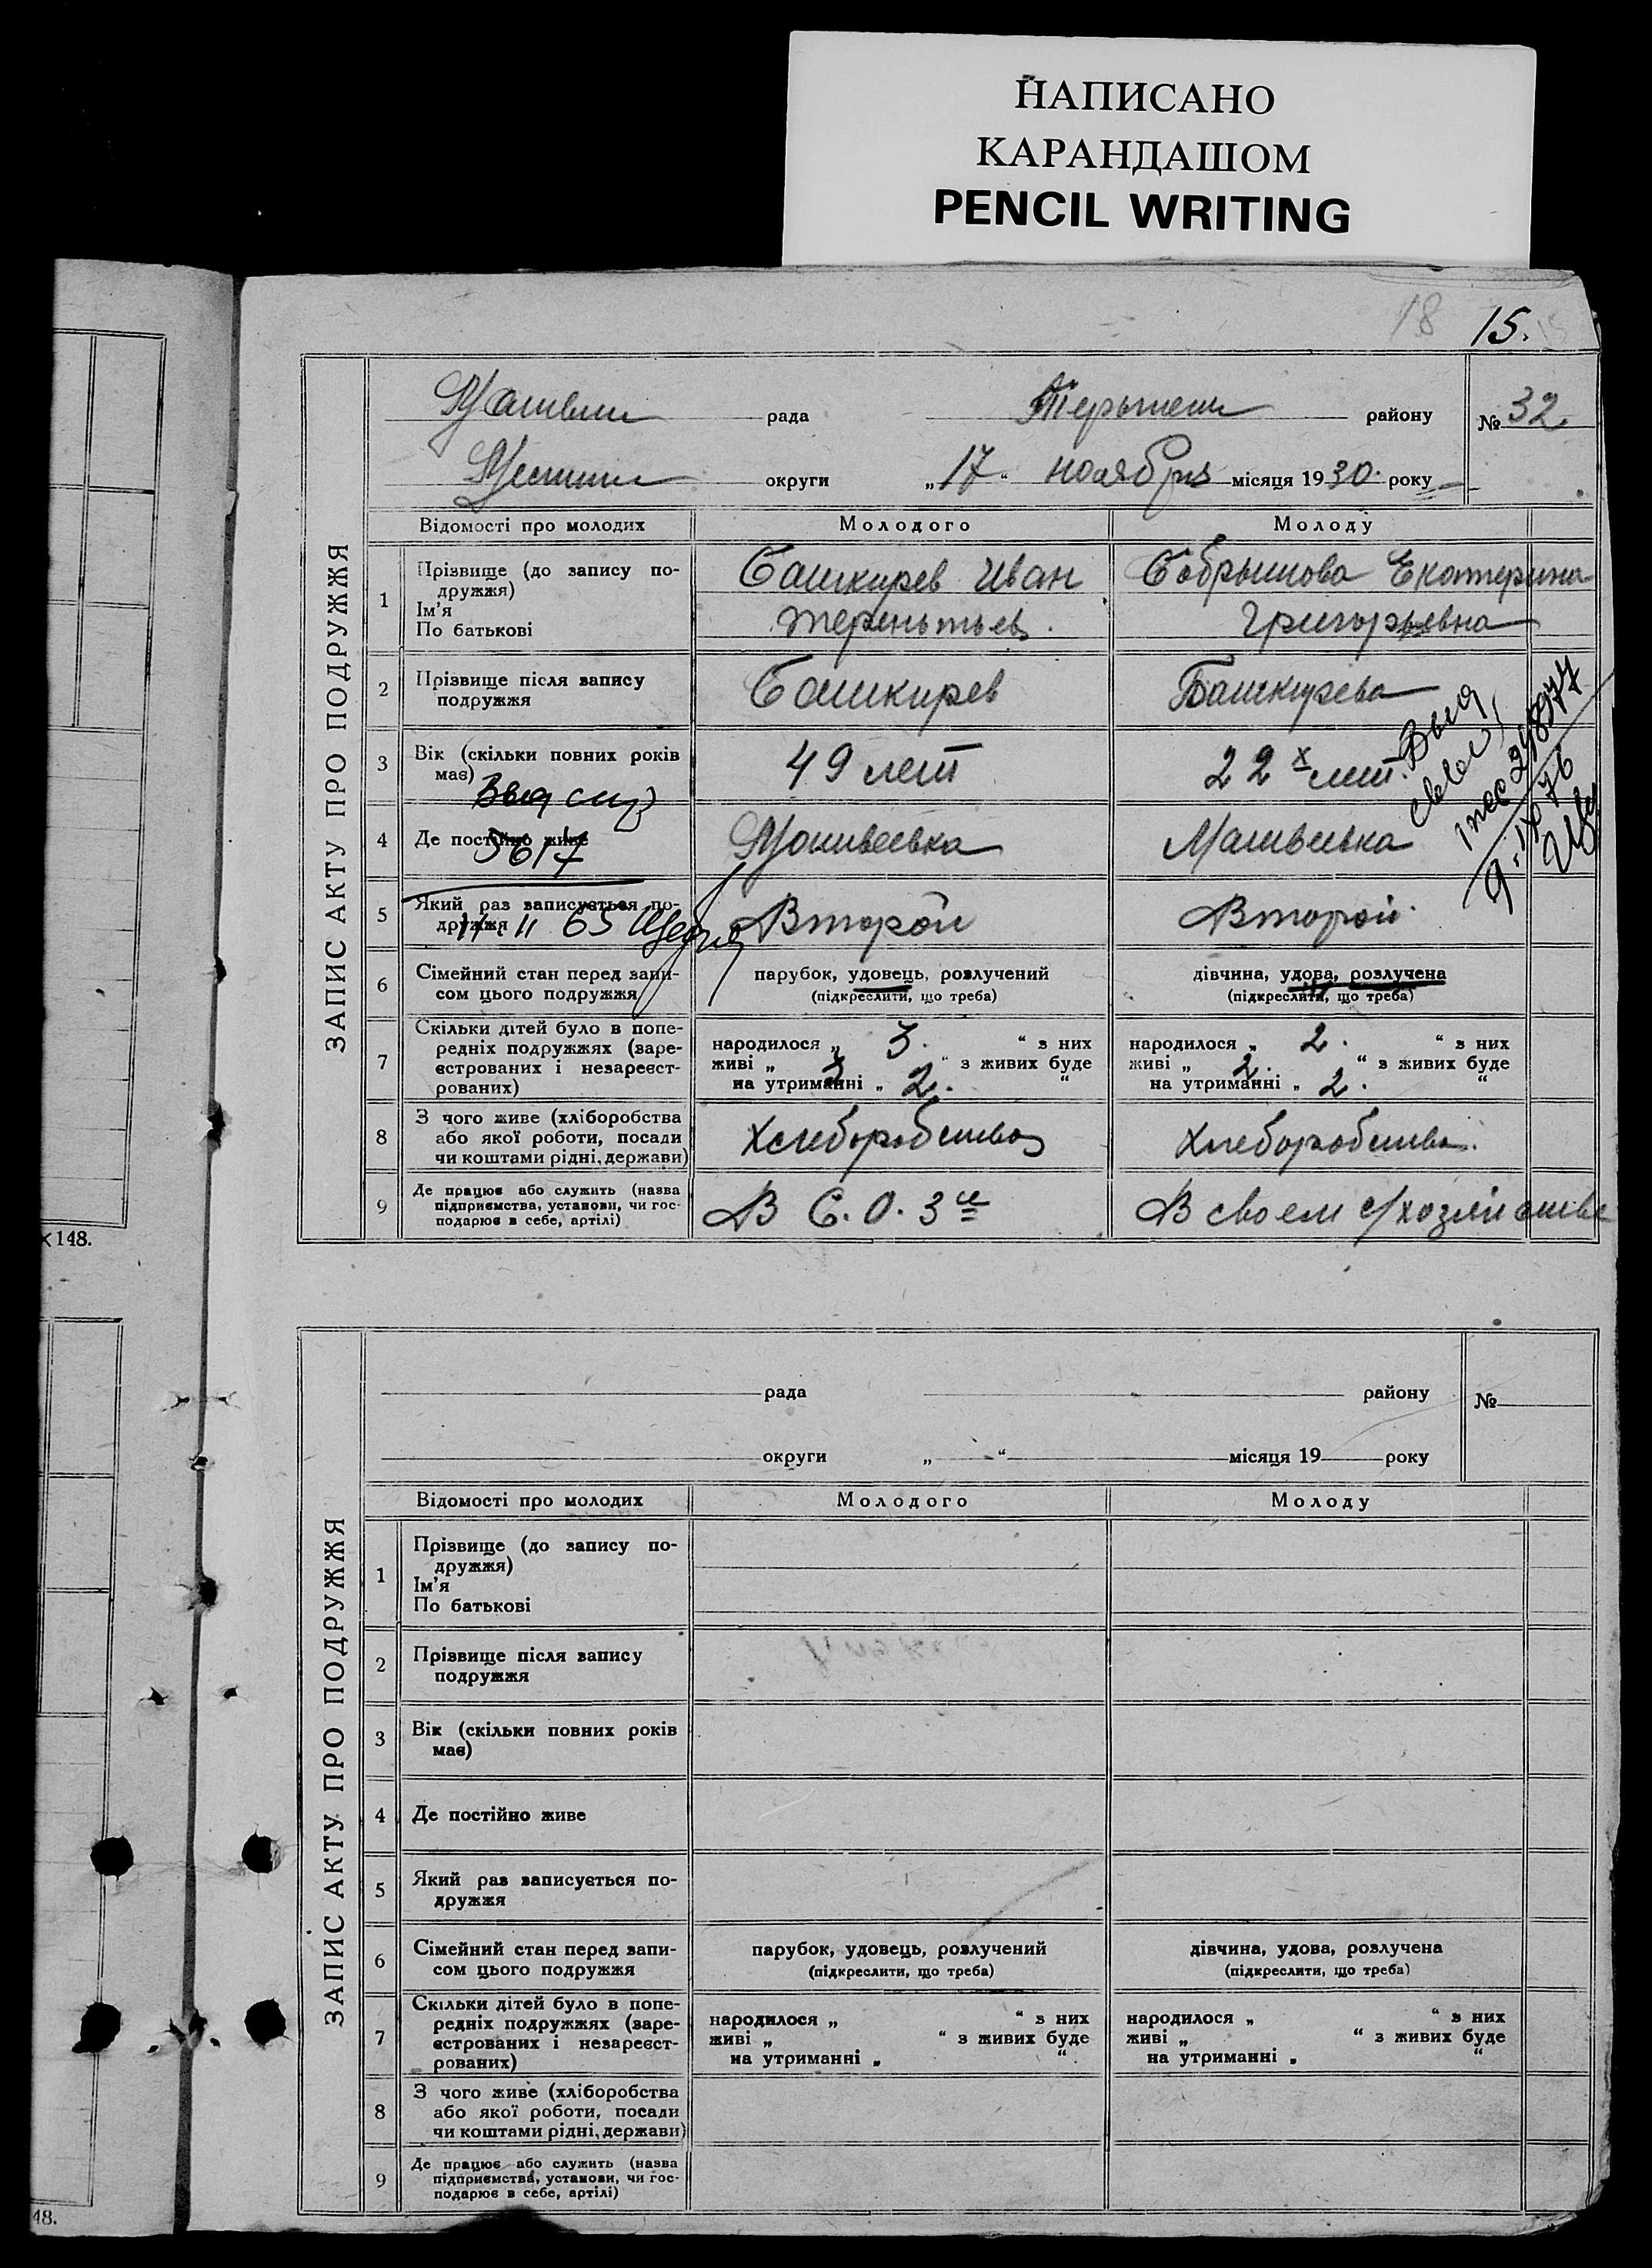 НАПИСАНО
КАРАНДАШОМ
PENCIL WRITING
18 15.
ЗАПИС АКТУ ПРО ПОДРУЖЖЯ
рада району № 32
округи „17“ ноября місяця 1930 року
Відомості про молодих Молодого Молоду
1 Прізвище (до запису по-
дружжя)
Ім'я
По батькові
Башкирев Иван
Терентьев
Екатерина
Григорьевна
2 Прізвище після запису
подружжя
Башкирев Башкирева
3 Вік (скільки повних років
має)
49 лет 22х лет.
4 Де постійно живе
Матвеевка Матвеевка
5 Який раз записується по-
дружжя
Второй Второй
6 Сімейний стан перед запи-
сом цього подружжя
парубок, удовець, розлучений
(підкреслити, що треба)
дівчина, удова, розлучена
(підкреслити, що треба)
7 Скільки дітей було в попе-
редніх подружжях (заре-
єстрованих і незареєст-
рованих)
народилося „ 3. “ з них
живі „ 3 “ з живих буде
на утриманні „ 2. “
народилося „ 2. “ з них
живі „ 2. “ з живих буде
на утриманні „ 2. “
8 З чого живе (хліборобства
або якої роботи, посади
чи коштами рідні, держави)
Хлеборобство Хлеборобство.
9 Де працює або служить (назва
підприємства, установи, чи гос-
подарює в себе, артілі)
В С.О.З це
В своем с/хозяйстве
Выд
5617
11 65
Выд
248977
×148.
ЗАПИС АКТУ ПРО ПОДРУЖЖЯ
рада району №
округи „ “ місяця 19 року
Відомості про молодих Молодого Молоду
1 Прізвище (до запису по-
дружжя)
Ім'я
По батькові
2 Прізвище після запису
подружжя
3 Вік (скільки повних років
має)
4 Де постійно живе
5 Який раз записується по-
дружжя
6 Сімейний стан перед запи-
сом цього подружжя
парубок, удовець, розлучений
(підкреслити, що треба)
дівчина, удова, розлучена
(підкреслити, що треба)
7 Скільки дітей було в попе-
редніх подружжях (заре-
єстрованих і незареєст-
рованих)
народилося „ “ з них
живі „ “ з живих буде
на утриманні „ “
народилося „ “ з них
живі „ “ з живих буде
на утриманні „ “
8 З чого живе (хліборобства
або якої роботи, посади
чи коштами рідні, держави)
9 Де працює або служить (назва
підприємства, установи, чи гос-
подарює в себе, артілі)
48.